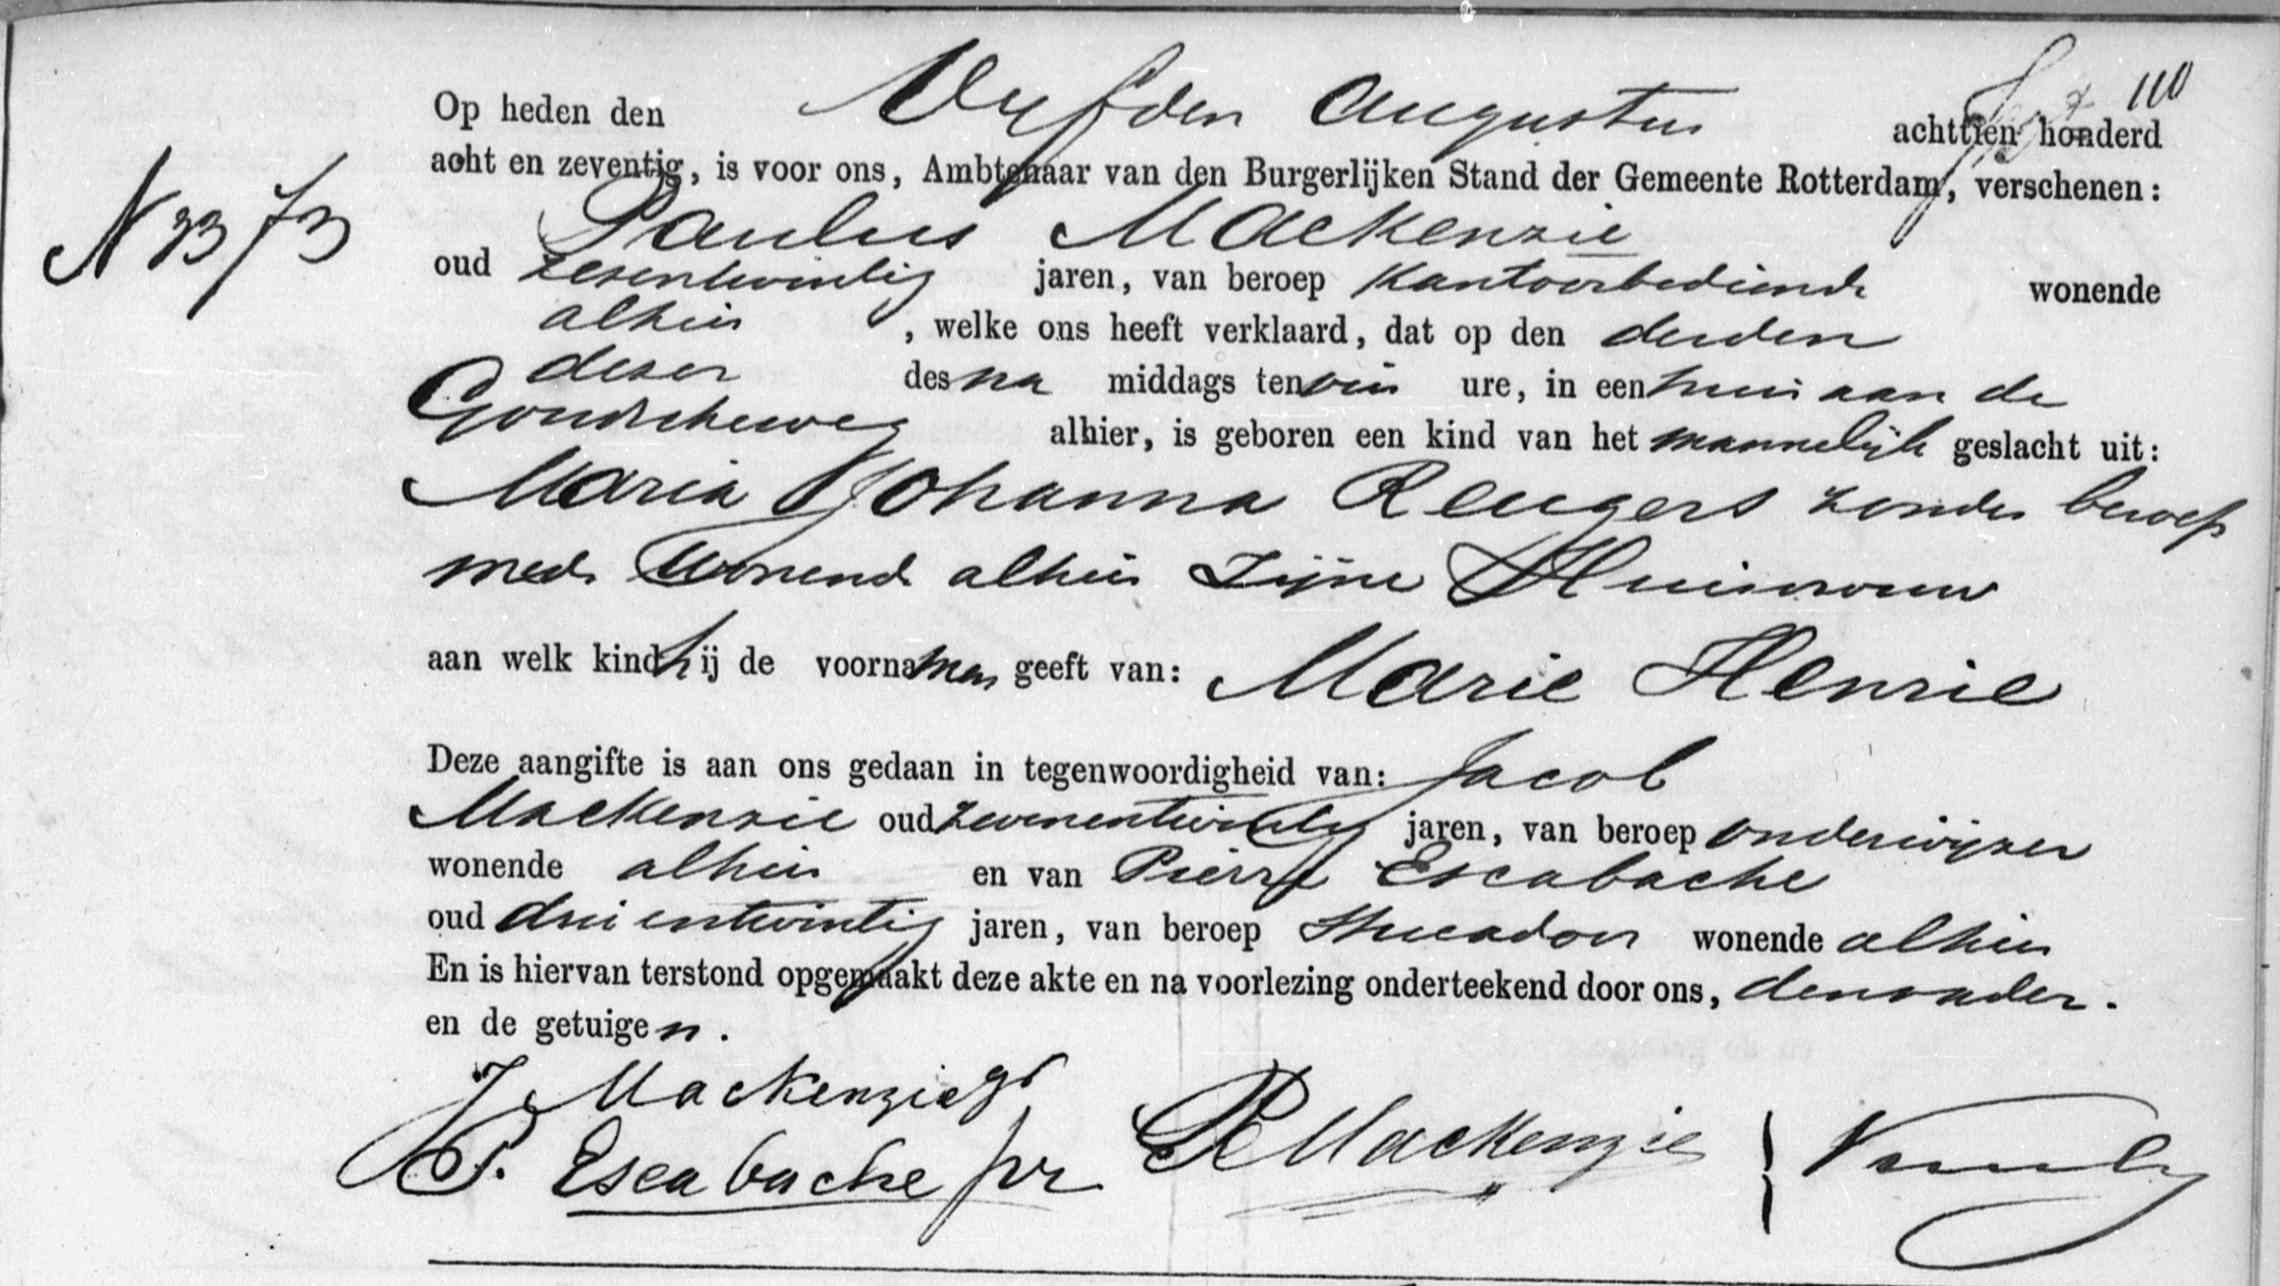 110
Op heden den Vijfden Augustus achttien honderd
acht en zeventig, is voor ons, Ambtenaar van den Burgerlijken Stand der Gemeente Rotterdam, verschenen:
N 3373
Paulus Mackenzie
oud zesentwintig jaren, van beroep Kantoorbediende wonende
alhier, welke ons heeft verklaard, dat op den derden
dezer des na middags ten een ure, in een huis aan de
Goudscheweg alhier, is geboren een kind van het mannelijk geslacht uit:
Maria Johanna Reugers zonder beroep
mede wonende alhier Zijne Huisvrouw
aan welk kind hij de voornamen geeft van: Marie Henrie
Deze aangifte is aan ons gedaan in tegenwoordigheid van: Jacob
Mackenzie oud zevenentwintig jaren, van beroep onderwijzer
wonende alhier en van Pierre Escabache
oud drieentwintig jaren, van beroep Stucadoor wonende alhier
En is hiervan terstond opgemaakt deze akte en na voorlezing onderteekend door ons, den vader.
en de getuigen.
J. Mackenzie
P. Escabache jnr P Mackenzie